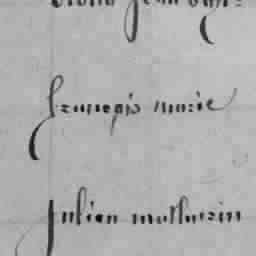 françois marie
Julien mathurin